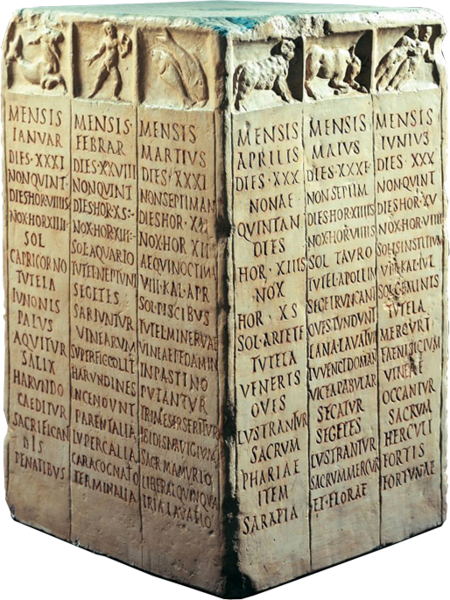 MENSIS
IANVAR
DIES·XXXI
NONQVINT
DIESHOR·VIIII
NOX·HOR·XIIII
SOL
CAPRICORNO
TVTELA
IVNONIS
PALVS
AQVITVR
SALIX
HARVNDO
CAEDITVR
SACRIFICAN
DIS
PENATIBVS
MENSIS·
FEBRAR
DIES·XXVIII
NONQVINT
DIESHOR·XS·
NOX·HOR·XIII
SOL·AQVARIO
TVTEL·NEPTVNI
SEGETES
SARIVNTVR
VINEARVM
SVPERFICCOLIT
HARVNDINES
INCENDVNT
PARENTALIA
LVPERCALIA
CARACOGNATIO
TERMINALIA
MENSIS
MARTIVS
DIES·XXXI
NONSEPTIMAN
DIESHOR·XII
NOX·HOR·XII
AEQVINOCTIVM
VIII·KAL·APR
SOL·PISCIBVS
TVTEL·MINERVAE
VINEAEPEDAMIN
INPASTINO
PVTANTVR
TRIMESTRSERITVR
ISIDISNAVIGIVM
SACR·MAMVRIO
LIBERAL·QVINQVA
TRIA·LAVATIO
MENSIS
APRILIS
DIES·XXX
NONAE
QVINTAN
DIES
HOR·XIIIS
NOX
HOR·XS
SOL·ARIETE
TVTELA
VENERIS
OVES
LVSTRANTVR
SACRVM
PHARIAE
ITEM
SARAPIA
MENSIS
MAIVS
DIES·XXXI
NONSEPTIM
DIESHOR·XIIIIS
NOX·HOR·VIIIIS
SOL·TAVRO
TVTEL·APOLLIN
SEGETRVNCANT
OVES·TVNDVNT
LANA·LAVATVR
IVVENCIDOMAN
VICT·PABVLAR
SECATVR
SEGETES
LVSTRANTVR
SACRVM·MERCVR
ET·FLORAE
MENSIS
IVNIVS
DIES·XXX
NONQVINT
DIESHOR·XV
NOX·HOR·VIIII
SOLISINSTITIVM
VIII·KAL·IVL
SOL·GEMINIS
TVTELA
MERCVRI
FAENISICIVM
VINEAE
OCCANTVR
SACRVM
HERCVLI
FORTIS
FORTVNAE